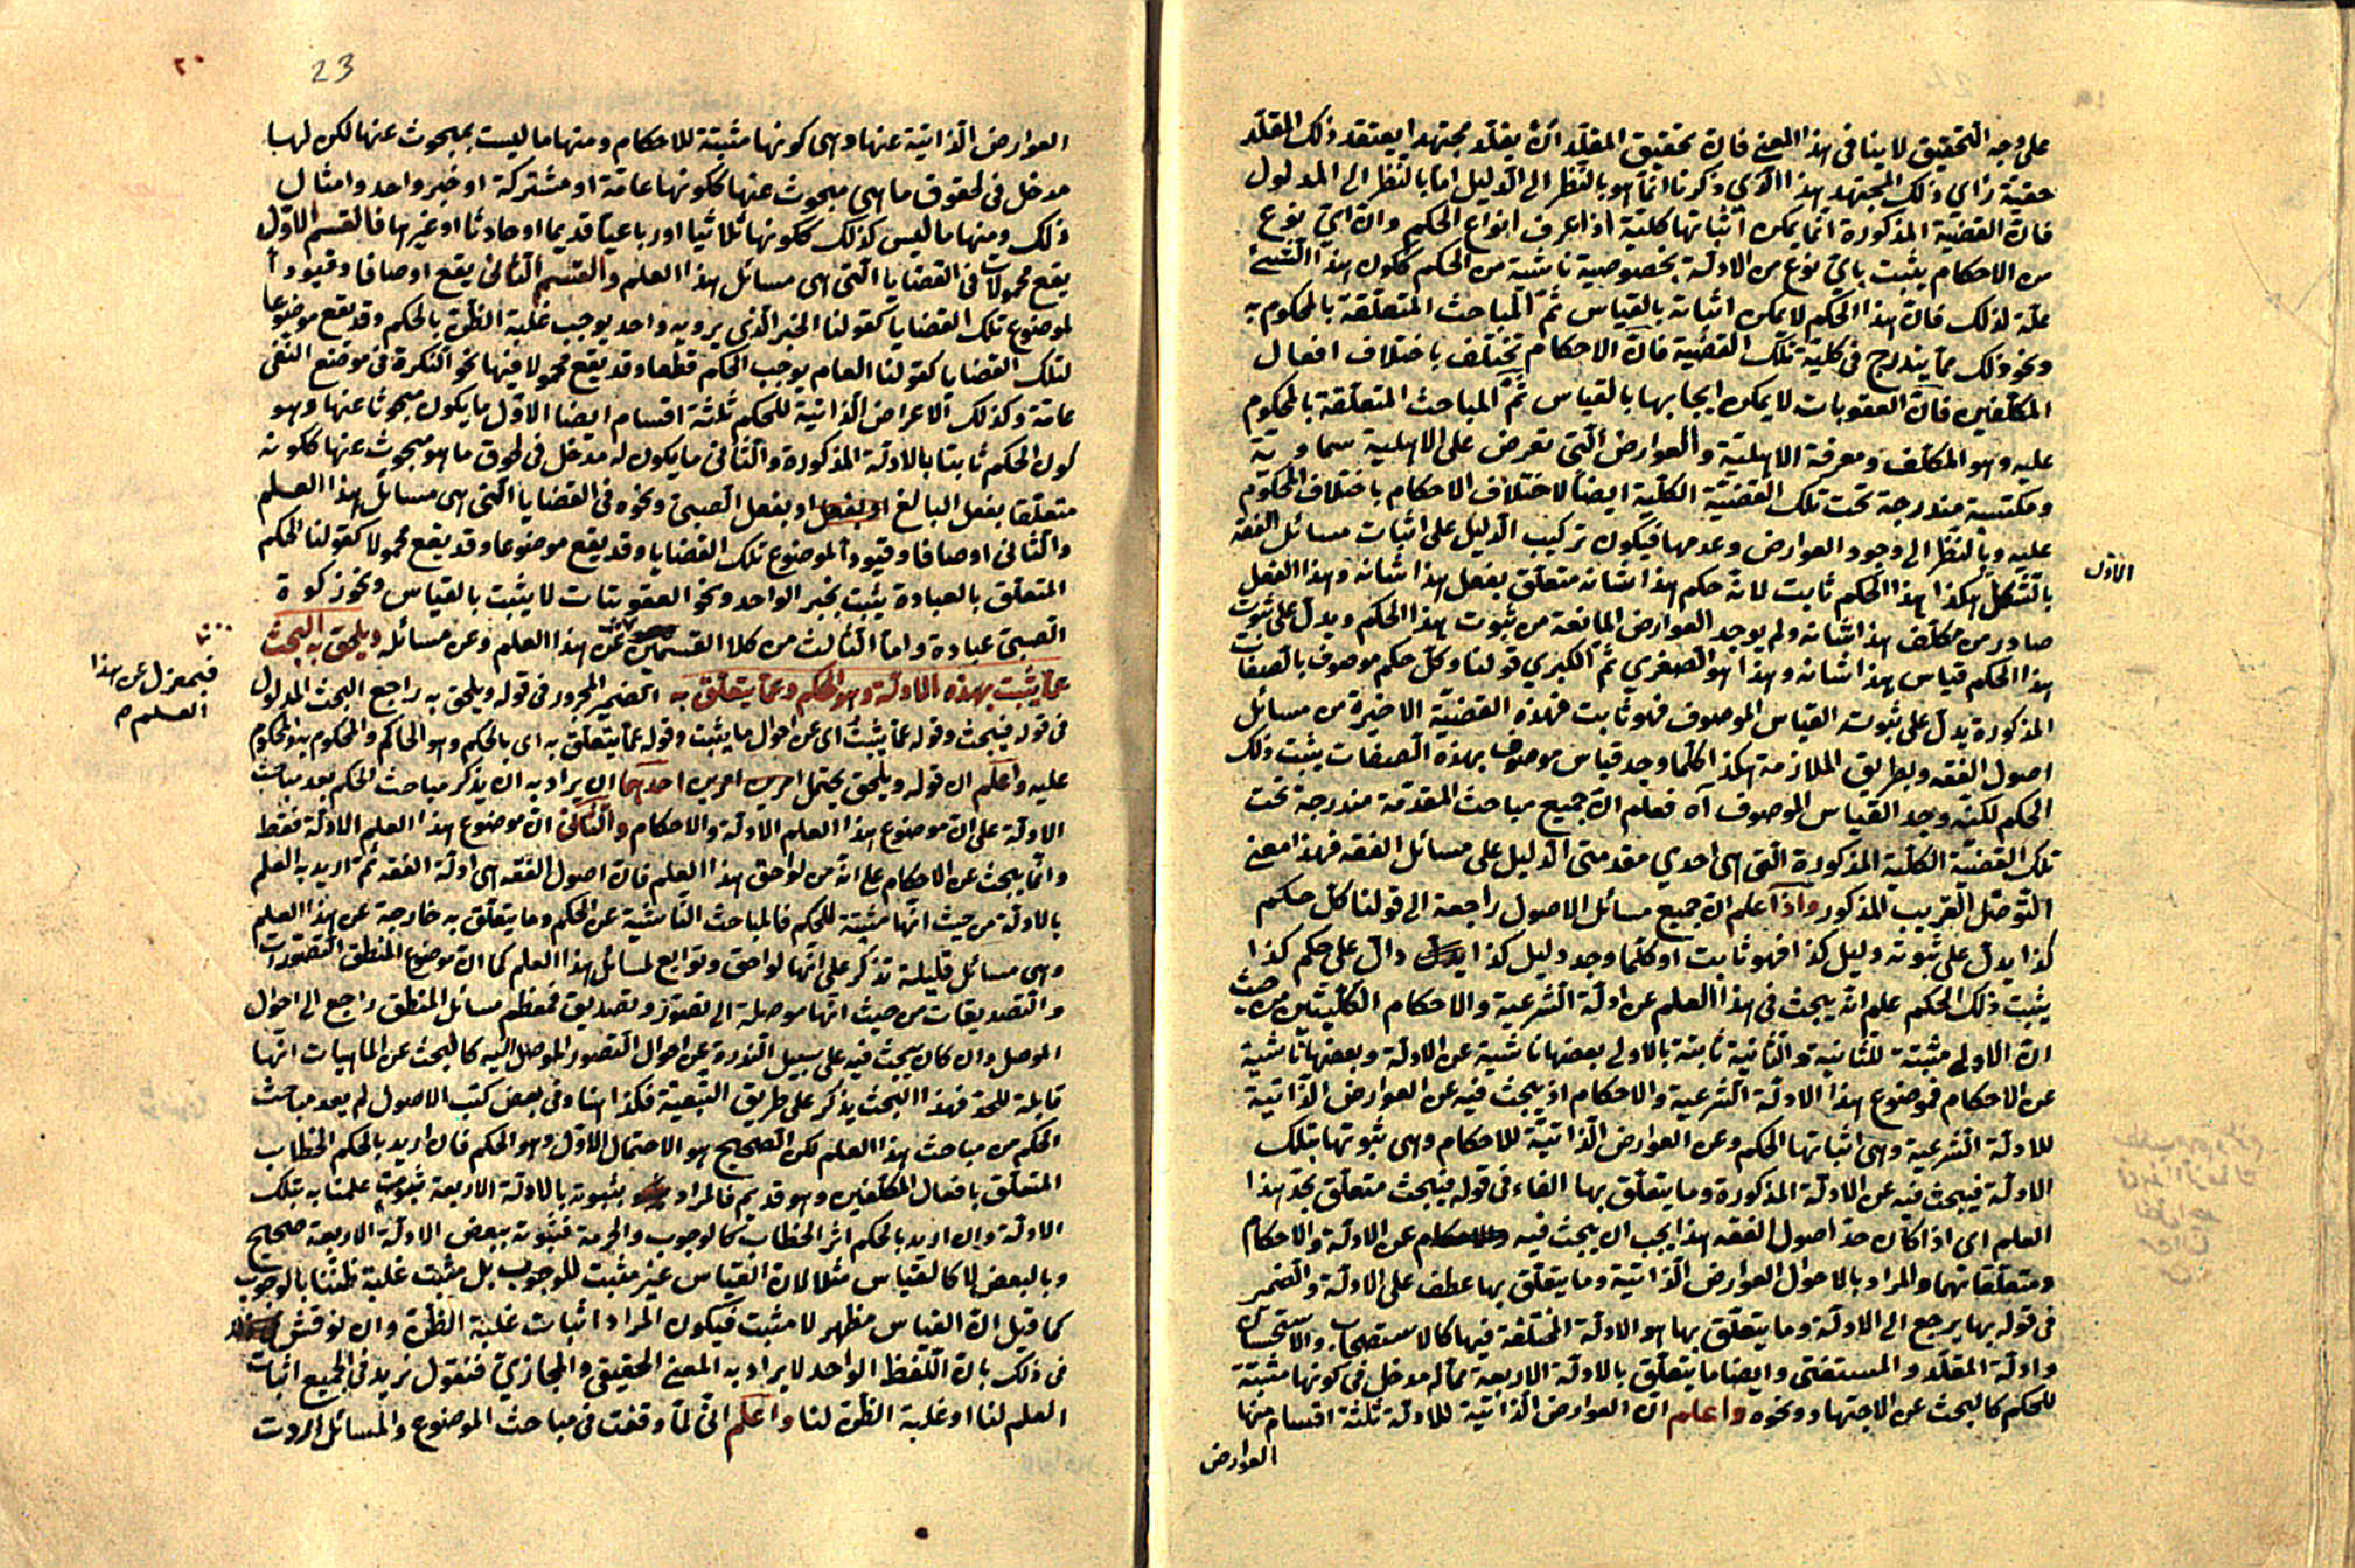 على وجه التحقيق لا ينافى هذا المعنى فان تحقيق المقلد ان يقلد مجتهدا يعتقد ذلك المقلد
حقية راي ذلك المجتهد هذا الذي ذكرنا انما هو بالنظر الى الدليل اما بالنظر الى المدلول
فان القضية المذكورة انما يمكن اثباتها كلية اذا عرف انواع الحكم وان اي نوع
من الاحكام يثبت باي نوع من الادلة بخصوصية ناشية من الحكم ككون هذا الشئ
علة لذلك فان هذا الحكم لا يمكن اثباته بالقياس ثم المباحث المتعلقة بالمحكوم به
ونحو ذلك مما يندرج فى كلية تلك القضية فان الاحكام تختلف باختلاف افعال
المكلفين فان العقوبات لا يمكن ايجابها بالقياس ثم المباحث المتعلقة بالمحكوم
عليه وهو المكلف ومعرفة الاهلية والعوارض التى تعرض على الاهلية سماوية
ومكتسبة مندرجة تحت تلك القضية الكلية ايضا لاختلاف الاحكام باختلاف المحكوم
عليه وبالنظر الى وجود العوارض وعدمها فيكون تركيب الدليل على اثبات مسائل الفقه
الاول
بالشكل هكذا هذا الحكم ثابت لانه حكم هذا شانه متعلق بفعل هذا شانه وهذا الفعل
صادر من مكلف هذا شانه ولم يوجد العوارض المانعة من ثبوت هذا الحكم ويدل على ثبوت
هذا الحكم قياس هذا شانه وهذا هو الصغري ثم الكبري قولنا وكل حكم موصوف بالصفات
المذكورة يدل على ثبوته القياس الموصوف فهو ثابت فهذه القضية الاخيرة من مسائل
اصول الفقه وبطريق الملازمة هكذا كلما وجد قياس موصوف بهذه الصفات يثبت ذلك
الحكم لكنه وجد القياس الموصوف آه فعلم ان جميع مباحث المقدمة مندرجة تحت
تلك القضية الكلية المذكورة التى هى احدي مقدمتى الدليل على مسائل الفقه فهذا معنى
التوصل القريب المذكور واذا علم ان جميع مسائل الاصول راجعة الى قولنا كل حكم
كذا يدل على ثبوته دليل كذا فهو ثابت او كلما وجد دليل كذا دال على حكم كذا
يثبت ذلك الحكم علم انه يبحث فى هذا العلم عن ادلة الشرعية والاحكام الكليتين من حيث
ان الاولى مثبتة للثانية والثانية ثابتة بالاولى بعضها ناشية عن الادلة وبعضها ناشية
عن الاحكام فموضوع هذا الادلة الشرعية والاحكام اذ يبحث فيه عن العوارض الذاتية
للادلة الشرعية وهى اثباتها الحكم وعن العوارض الذاتية للاحكام وهى ثبوتها بتلك
الادلة فيبحث فيه عن الادلة المذكورة وما يتعلق بها الفاء فى قوله فيبحث متعلق بحد هذا
العلم اى اذا كان حد اصول الفقه هذا يجب ان يبحث فيه عن الادلة والاحكام
ومتعلقاتهما والمراد بالاحوال العوارض الذاتية وما يتعلق بها عطف على الادلة والضمير
فى قوله بها يرجع الى الادلة وما يتعلق بها هو الادلة المختلفة فيها كالاستصحاب والاستحسان
وادلة المقلد والمستفتى وايضا ما يتعلق بالادلة الاربعة مما له مدخل فى كونها مثبتة
للحكم كالبحث عن الاجتهاد ونحوه واعلم ان العوارض الذاتية للادلة ثلثة اقسام منها
العوارض
٢٠
23
العوارض الذاتية عنها وهى كونها مثبتة للاحكام ومنها ما ليست بمبحوث عنها لكن لها
مدخل فى لحوق ما هى مبحوث عنها ككونها عامة او مشتركة او خبر واحد وامثال
ذلك ومنها ما ليس كذلك ككونها ثلاثيا او رباعيا قديما او حادثا او غيرها فالقسم الاول
يقع محمولات فى القضايا التى هى مسائل هذا العلم والقسم الثانى يقع اوصافا وقيودا
لموضوع تلك القضايا كقولنا الخبر الذي يرويه واحد يوجب غلبة الظن بالحكم وقد يقع موضوعا
لتلك القضايا كقولنا العام يوجب الحكم قطعا وقد يقع محمولا فيها نحو النكرة فى موضع النفى
عامة وكذلك الاعراض الذاتية للحكم ثلثة اقسام ايضا الاول ما يكون مبحوثا عنها وهو
كون الحكم ثابتا بالادلة المذكورة والثانى ما يكون له مدخل فى لحوق ما هو مبحوث عنها ككونه
متعلقا بفعل البالغ او بفعل او بفعل الصبى ونحوه فى القضايا التى هى مسائل هذا العلم
والثانى اوصافا وقيودا لموضوع تلك القضايا وقد يقع موضوعا وقد يقع محمولا كقولنا الحكم
المتعلق بالعبادة يثبت بخبر الواحد ونحو العقوبات لا يثبت بالقياس ونحو زكوة
الصبى عبادة واما الثالث من كلا القسمين عن هذا العلم وعن مسائله ويلحق به البحث
فبمعزل عن هذا
العلم م
عما يثبت بهذه الادلة وهو الحكم وعما يتعلق به الضمير المجرور فى قوله ويلحق به راجع البحث المدلول
فى قوله فيبحث وقوله عما يثبت اى عن احوال ما يثبت وقوله عما يتعلق به اى بالحكم وهو الحاكم والمحكوم به والمحكوم
عليه واعلم ان قوله ويلحق يحتمل امرين احدهما ان يراد به ان يذكر مباحث الحكم بعد مباحث
الادلة على ان موضوع هذا العلم الادلة والاحكام والثانى ان موضوع هذا العلم الادلة فقط
وانما يبحث عن الاحكام على انه من لواحق هذا العلم فان اصول الفقه هى ادلة الفقه ثم اريد به العلم
بالادلة من حيث انها مثبتة للحكم فالمباحث الناشية عن الحكم وما يتعلق به خارجة عن هذا العلم
وهى مسائل قليلة تذكر على انها لواحق وتوابع لمسائل هذا العلم كما ان موضوع المنطق التصورات
والتصديقات من حيث انها موصلة الى تصور وتصديق فمعظم مسائل المنطق راجع الى احوال
الموصل وان كان يبحث فيه على سبيل الندرة عن احوال التصور الموصل اليه كالبحث عن الماهيات انها
قابلة للحد فهذا البحث يذكر على طريق التبعية فكذا هنا وفى بعض كتب الاصول لم يعد مباحث
الحكم من مباحث هذا العلم لكن الصحيح هو الاحتمال الاول وهو الحكم فان اريد بالحكم الخطاب
المتعلق بافعال المكلفين وهو قديم فالمراد بثبوته بالادلة الاربعة ثبوت علمنا به بتلك
الادلة وان اريد بالحكم اثر الخطاب كالوجوب والحرمة فثبوته ببعض الادلة الاربعة صحيح
وبالبعض لا كالقياس مثلا لان القياس غير مثبت للوجوب بل مثبت غلبة ظننا بالوجوب
كما قيل ان القياس مظهر لا مثبت فيكون المراد اثبات غلبة الظن وان نوقش
فى ذلك بان اللفظ الواحد لا يراد به المعنى الحقيقى والمجازي فنقول نريد فى الجميع اثبات
العلم لنا او غلبة الظن لنا واعلم انى لما وقفت فى مباحث الموضوع والمسائل اردت